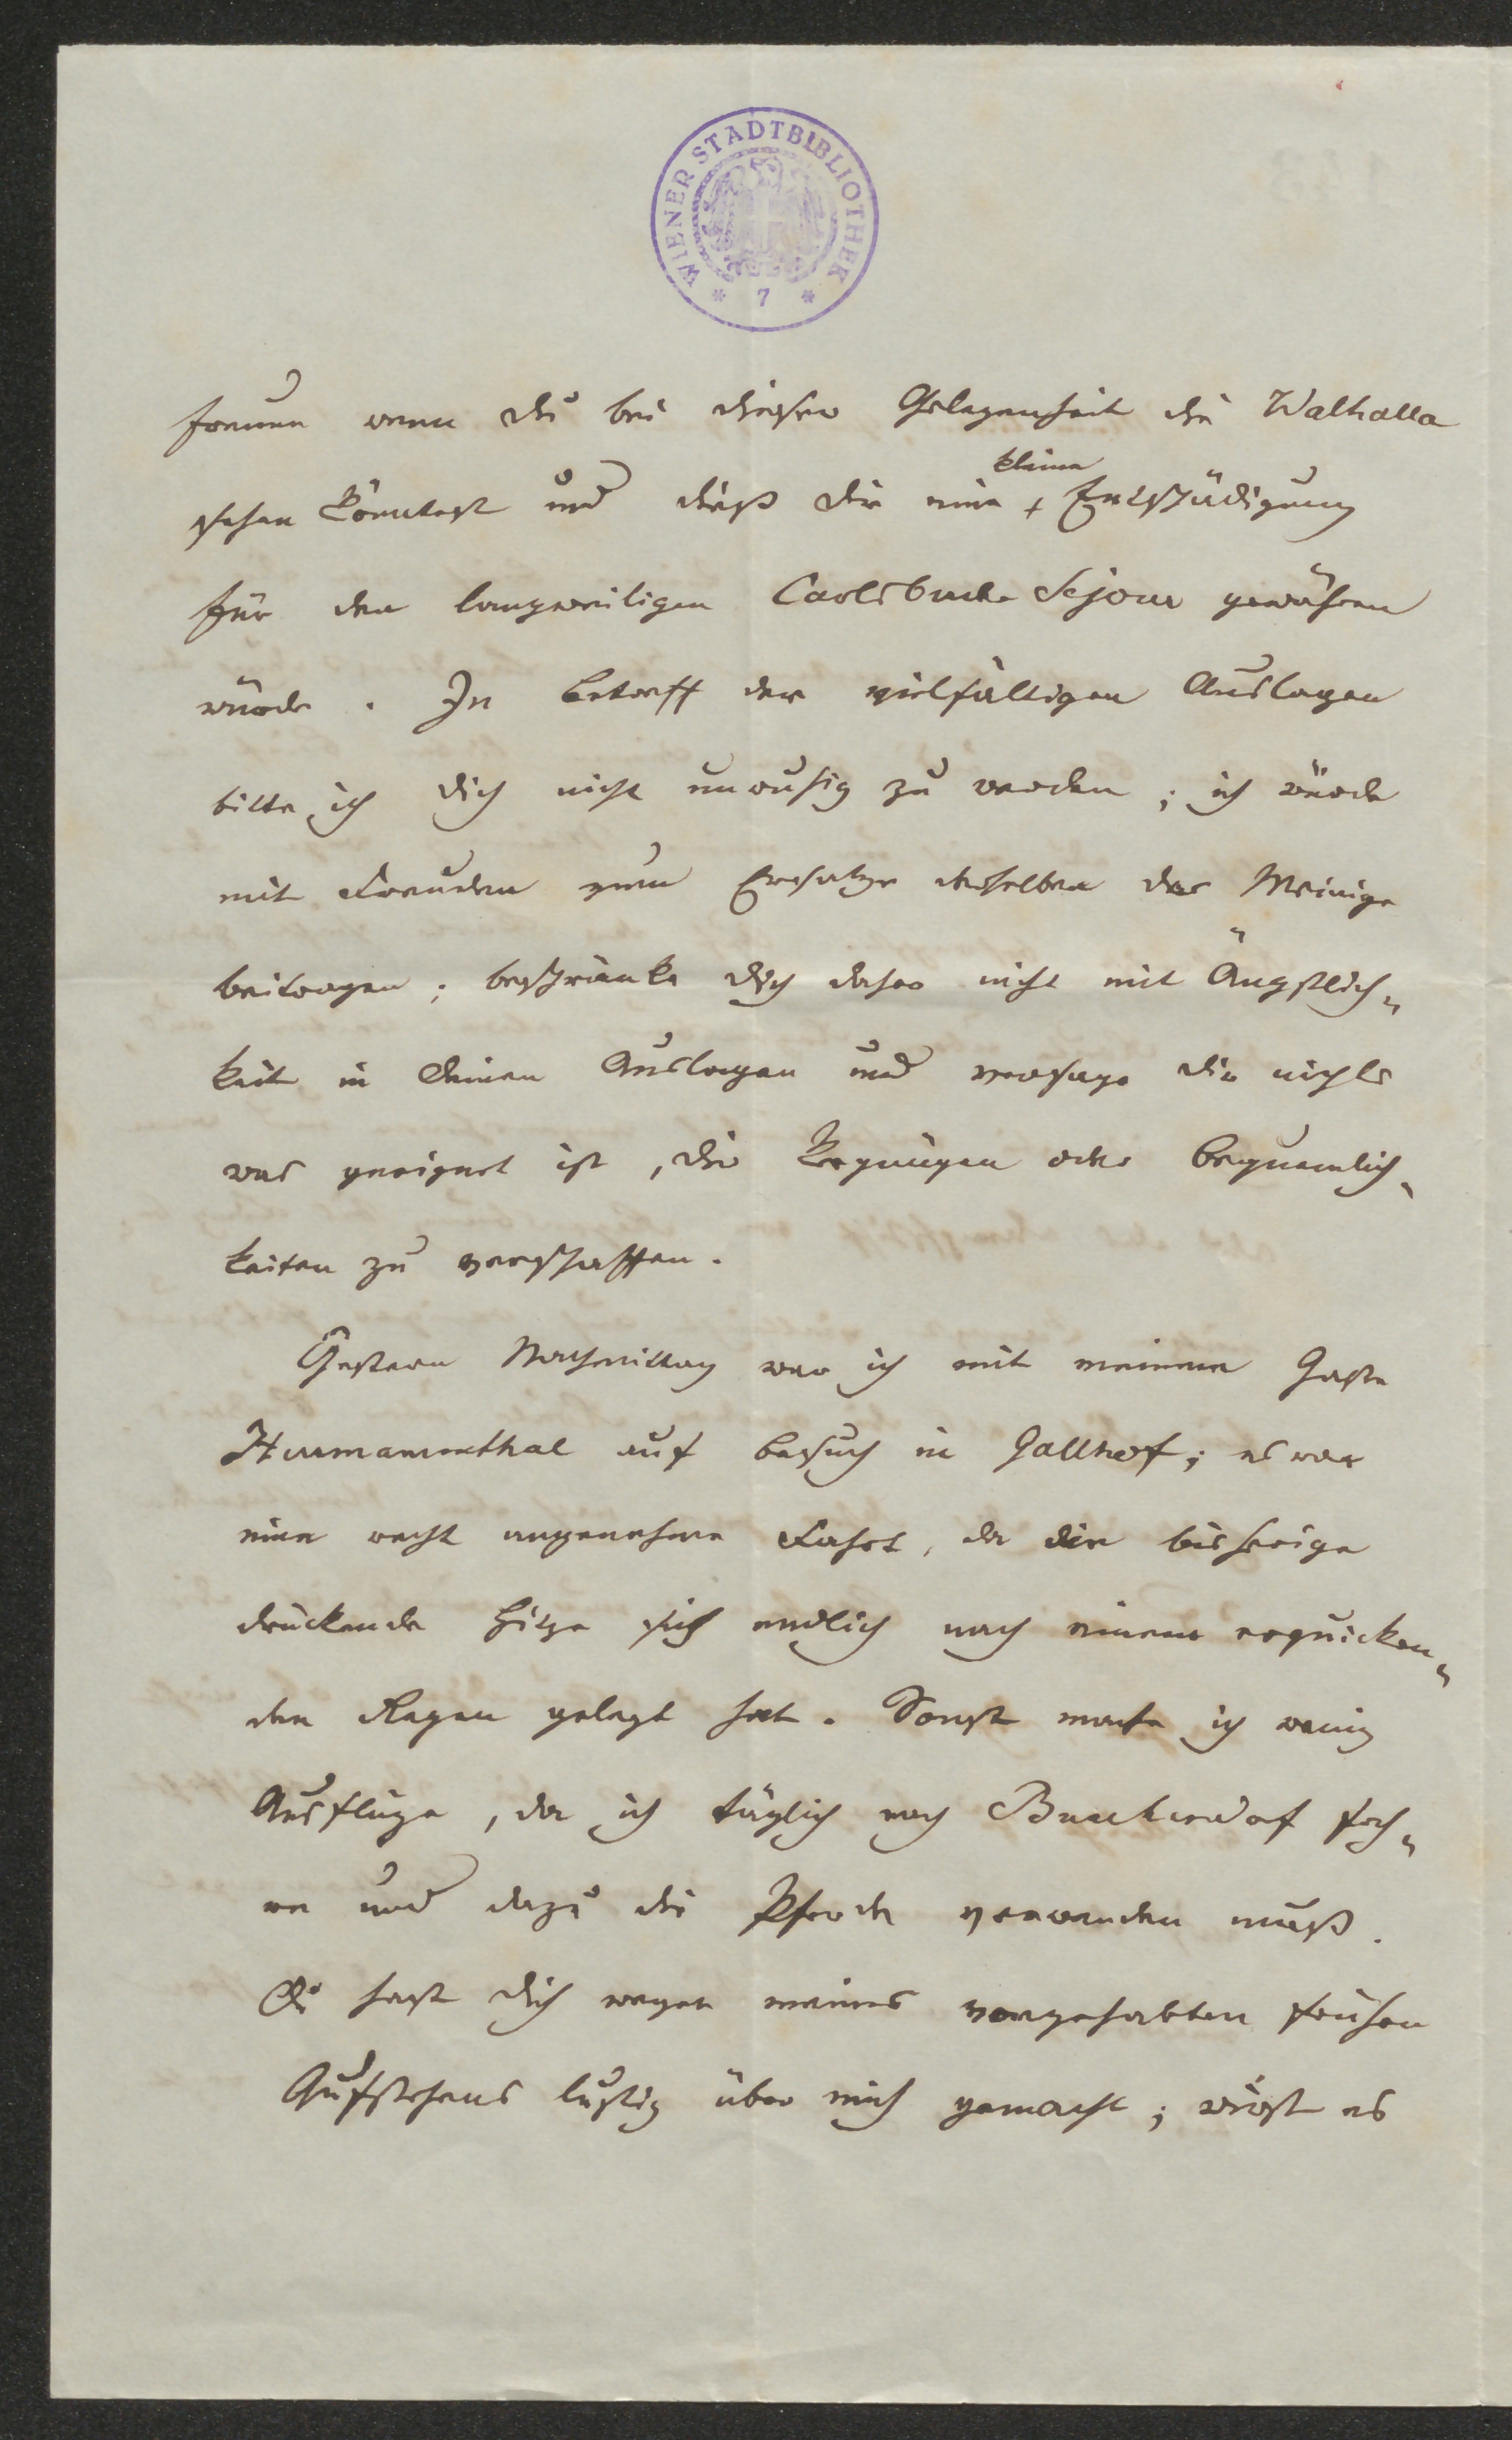 WIENER STADTBIBLIOTHEK
* 7 *
freuen wenn du bei dieser Gelegenheit die Walhalla
kleine
sehen könntest und dieß dir eine + Entschädigung
für den langweiligen Carlsbader Sejour gewähren
würde. In betreff der vielfältigen Auslagen
bitte ich dich nicht unruhig zu werden; ich würde
mit Freuden zum Ersatze derselben das Meinige
beitragen; beschränke dich daher nicht mit Ängstlich„
keit in deinen Auslagen und versage dir nichts
was geeignet ist, dir Vergnügen oder bequemlich„
keiten zu verschaffen.
Gestern Nachmittag war ich mit meinem Gaste
Herrmannsthal auf besuch in Gallhof; es war
eine recht angenehme Fahrt, da die bisherige
drückende Hitze sich endlich nach einem erquicken„
den Regen gelegt hat. Sonst mache ich wenig
Ausflüge, da ich täglich nach fah„
re und dazu die Pferde verwenden muß.
Du hast dich wegen meines vorgehabten frühen
Aufstehens lustig über mich gemacht; wirst es